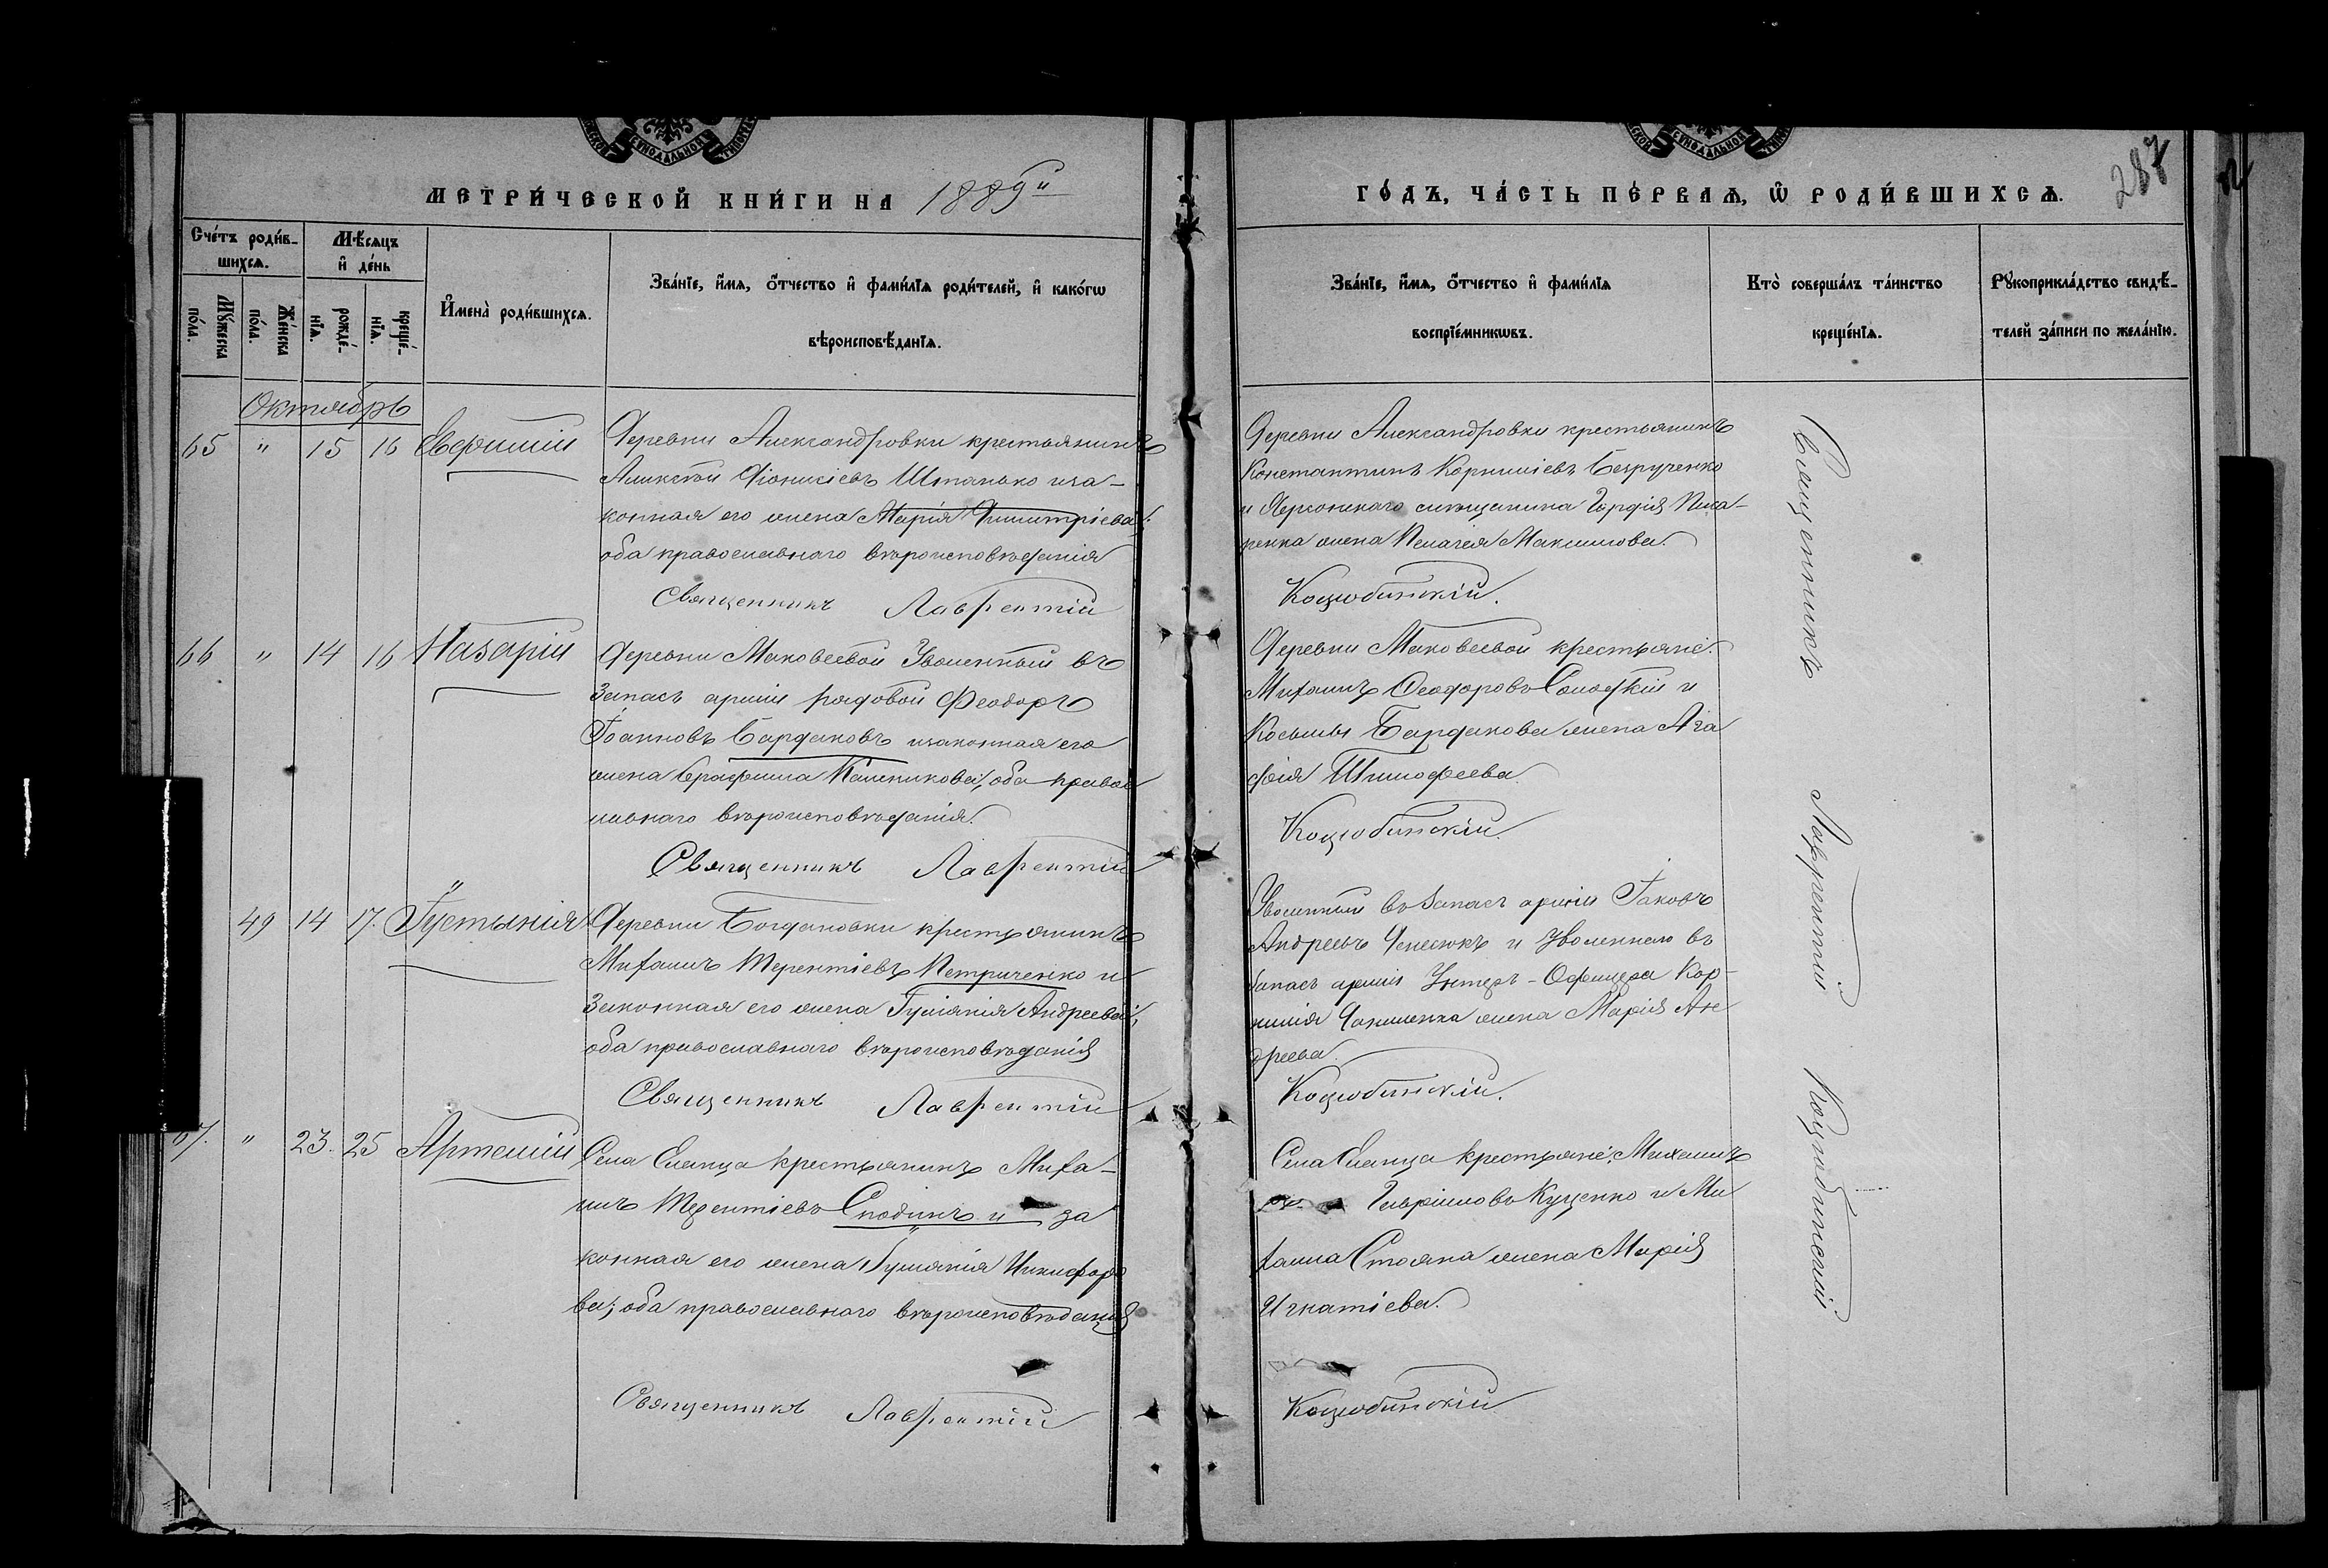 МЕТРИЧЕСКОЙ КНИГИ НА 1889й
ГОДЪ, ЧАСТЬ ПЕРВАЯ, Ѿ РОДИВШИХСЯ.
287
Счетъ родив-
шихся.
Мѣсяцъ
и день
Мужеска
пола.
Женска
пола.
рожде-
нія.
креще-
нія.
Имена родившихся.
Званіе, имя, отчество и фамилія родителей, и какогѡ
вѣроисповѣданія.
Званіе, имя, отчество и фамилія
воспріемникѡвъ.
Кто совершалъ таинство
крещенія.
Рꙋкоприкладство свидѣ-
телей записи по желанію.
Октябрь
65 " 15 16 Евфимій
Деревни Александровки крестьянинъ
Алексѣй Діонисіевъ Штанько и за-
конная его жена Марія Димитріева,
оба православнаго вѣроисповѣданія
Священникъ Лаврентій
Деревни Александровки крестьянинъ
Константинъ Корниліевъ Безрученко
и Херсонскаго мѣщанина Гордія Писа-
ренка жена Пелагея Максимова.
Коцюбинскій.
66 " 14 16 Назарій
Деревни Маковеевой Уволенный въ
Запасъ арміи рядовой Феодоръ
Іоанновъ Бардаковъ и законная его
жена оба правос
лавнаго вѣроисповѣданія.
Священникъ Лаврентій
Деревни Маковеевой крестьяне:
Михаилъ Феодоровъ и
Космы Бардакова жена Ага
фія Тимофеева.
Коцюбинскій.
49 14 17. Іустинія
Деревни Богдановки крестьянинъ
Михаилъ Терентіевъ Петриченко и
Законная его жена Іуліанія Андреева,
оба православнаго вѣроисповѣданія
Священникъ Лаврентій
Уволенный въ Запасъ арміи Іаковъ
Андреевъ и Уволеннаго въ
Запасъ арміи Унтеръ-Офицера Кор-
нилія жена Марія Ан
дреева.
Коцюбинскій.
67. " 23. 25 Артемій
Села Еланца крестьянинъ Миха-
илъ Терентіевъ и за
конная его жена Іуліанія Никифоро
ва; оба православнаго вѣроисповѣданія
Священникъ Лаврентій
Села Еланца крестьяне: Михаилъ
Гавріиловъ Куценко и Ми
хаила Стояна жена Марія
Игнатіева.
Коцюбинскій
Священникъ Лаврентій Коцюбинскій